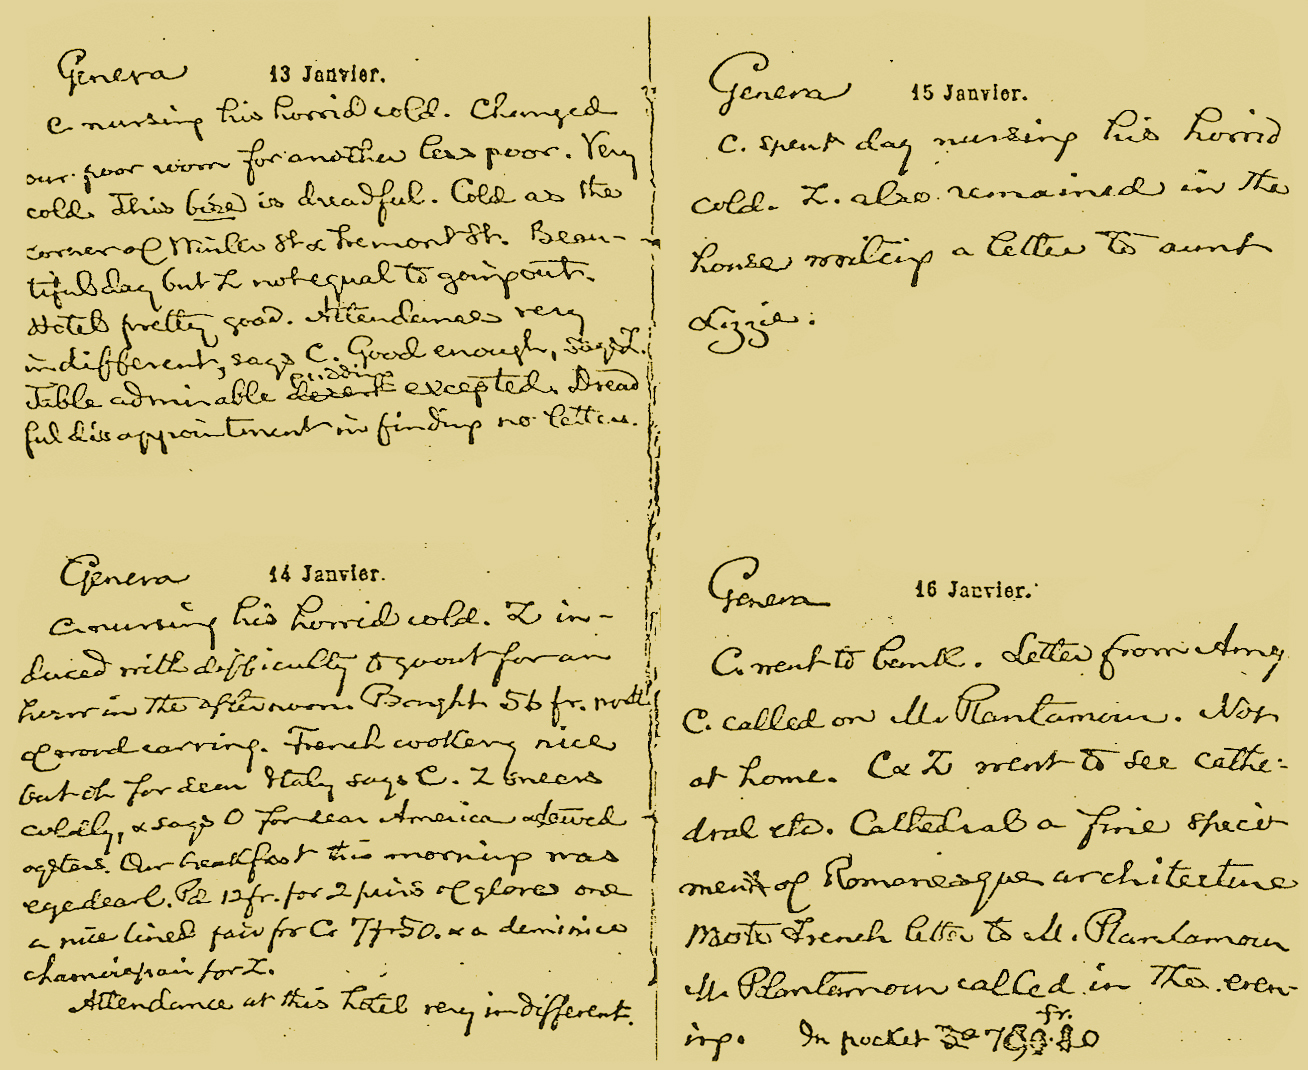 Geneva 13 Janvier.
C. nursing his horrid cold. Changed
our poor room for another less poor. Very
cold. This (bise) is dreadful. Cold as the
corner of Winter St & Tremont St. Beau-
tiful day but Z not equal to going out.
Hotel pretty good. Attendance very
indifferent, says C. Good enough, says Z.
pudding
Table admirable desert excepted. Dread
ful disappointment in finding no letters.
Geneva 14 Janvier.
C. nursing his horrid cold. Z in-
duced with difficulty to go out for an
hour in the afternoon. Bought 56 fr. worth
of wood carving. French cookery nice
but oh for dear Italy says C. Z sneers
coldly, & says O for dear America & stewed
oysters. Our breakfast this morning was
egedearl. Pd 12 fr. for 2 pairs of gloves one
a nice lined pair for C. 7 fr 50. & a
chamois pair for Z.
Attendance at this hotel very indifferent.
Geneva 15 Janvier.
C. spent day nursing his horrid
cold. Z. also remained in the
house writing a letter to aunt
Lizzie.
Geneva 16 Janvier.
C. went to bank. Letter from Amy
C. called on M. Plantamour. Not
at home. C & Z went to see cathe-
dral etc. Cathedral a fine speci
men of Romanesque architecture
Wrote French letter to M. Plantamour
M. Plantamour called in the even-
ing. In pocket fr.